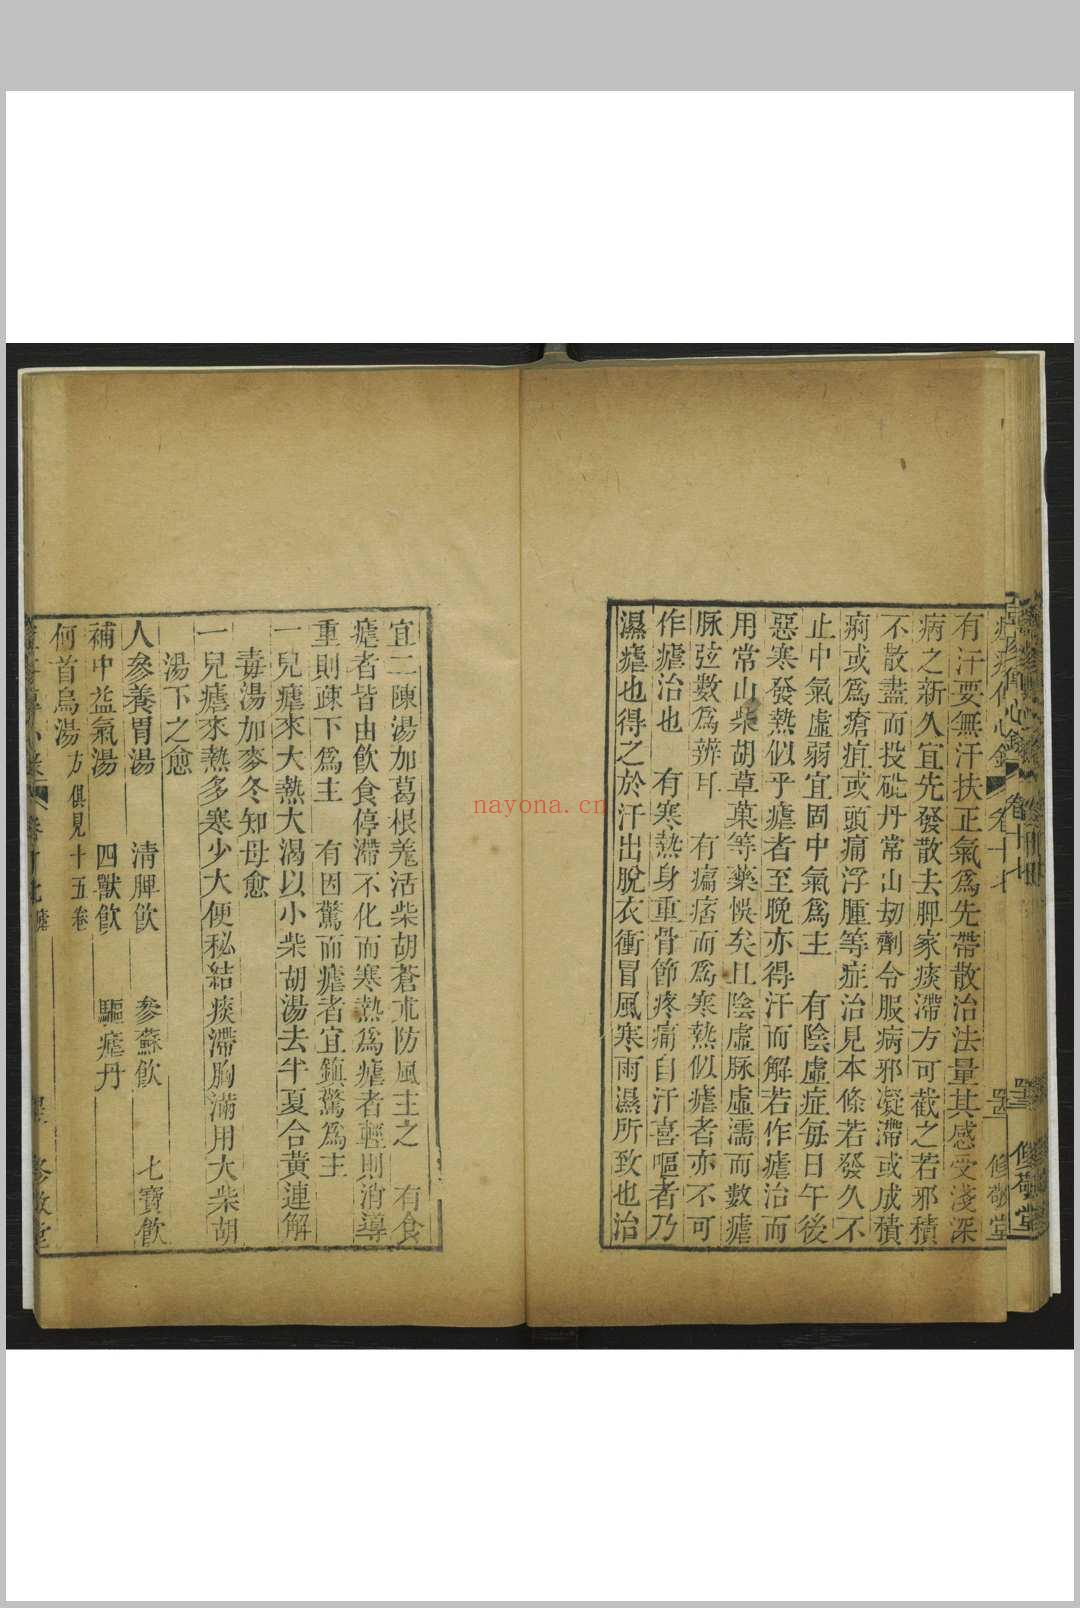 有汗要無汗扶正氣爲先帶散治法量其感受淺深
病之新久宜先發散去脾家痰滯方可截之若邪積
不散盡而投砒丹常山刼劑令服病邪凝滯或成積
痢或爲瘡疽或頭痛浮腫等症治見本條若發久不
止中氣虛弱宜固中氣爲主 有陰虛症每日午後
惡寒發熱似乎瘧者至晚亦得汗而解若作瘧治而
用常山柴胡草菓等藥悞矣且陰虛脉虛濡而數瘧
脉弦數爲辨耳 有痛痞而爲寒熱似瘧者亦不可
作瘧治也 有寒熱身重骨節疼痛自汗喜嘔者乃
濕瘧也得之於汗出脫衣衝冒風寒雨濕所致也治
宜二陳湯加葛根羗活柴胡蒼朮防風主之 有食
瘧者皆由飲食停滯不化而寒熱爲瘧者輕則消導
重則疎下爲主 有因驚而瘧者宜鎮驚爲主
一兒瘧來大熱大渴以小柴胡湯去半夏合黃連解
毒湯加麥冬知母愈
一兒瘧來熱多寒少大便秘結痰滯胸滿用大柴胡
湯下之愈
人參養胃湯 清脾飲 參蘇飲 七寶飲
補中益氣湯 四獸飲 驅瘧丹
何首烏湯 方俱見十五卷
痘疹傳心錄 卷十七 修敬堂
nayona.cn